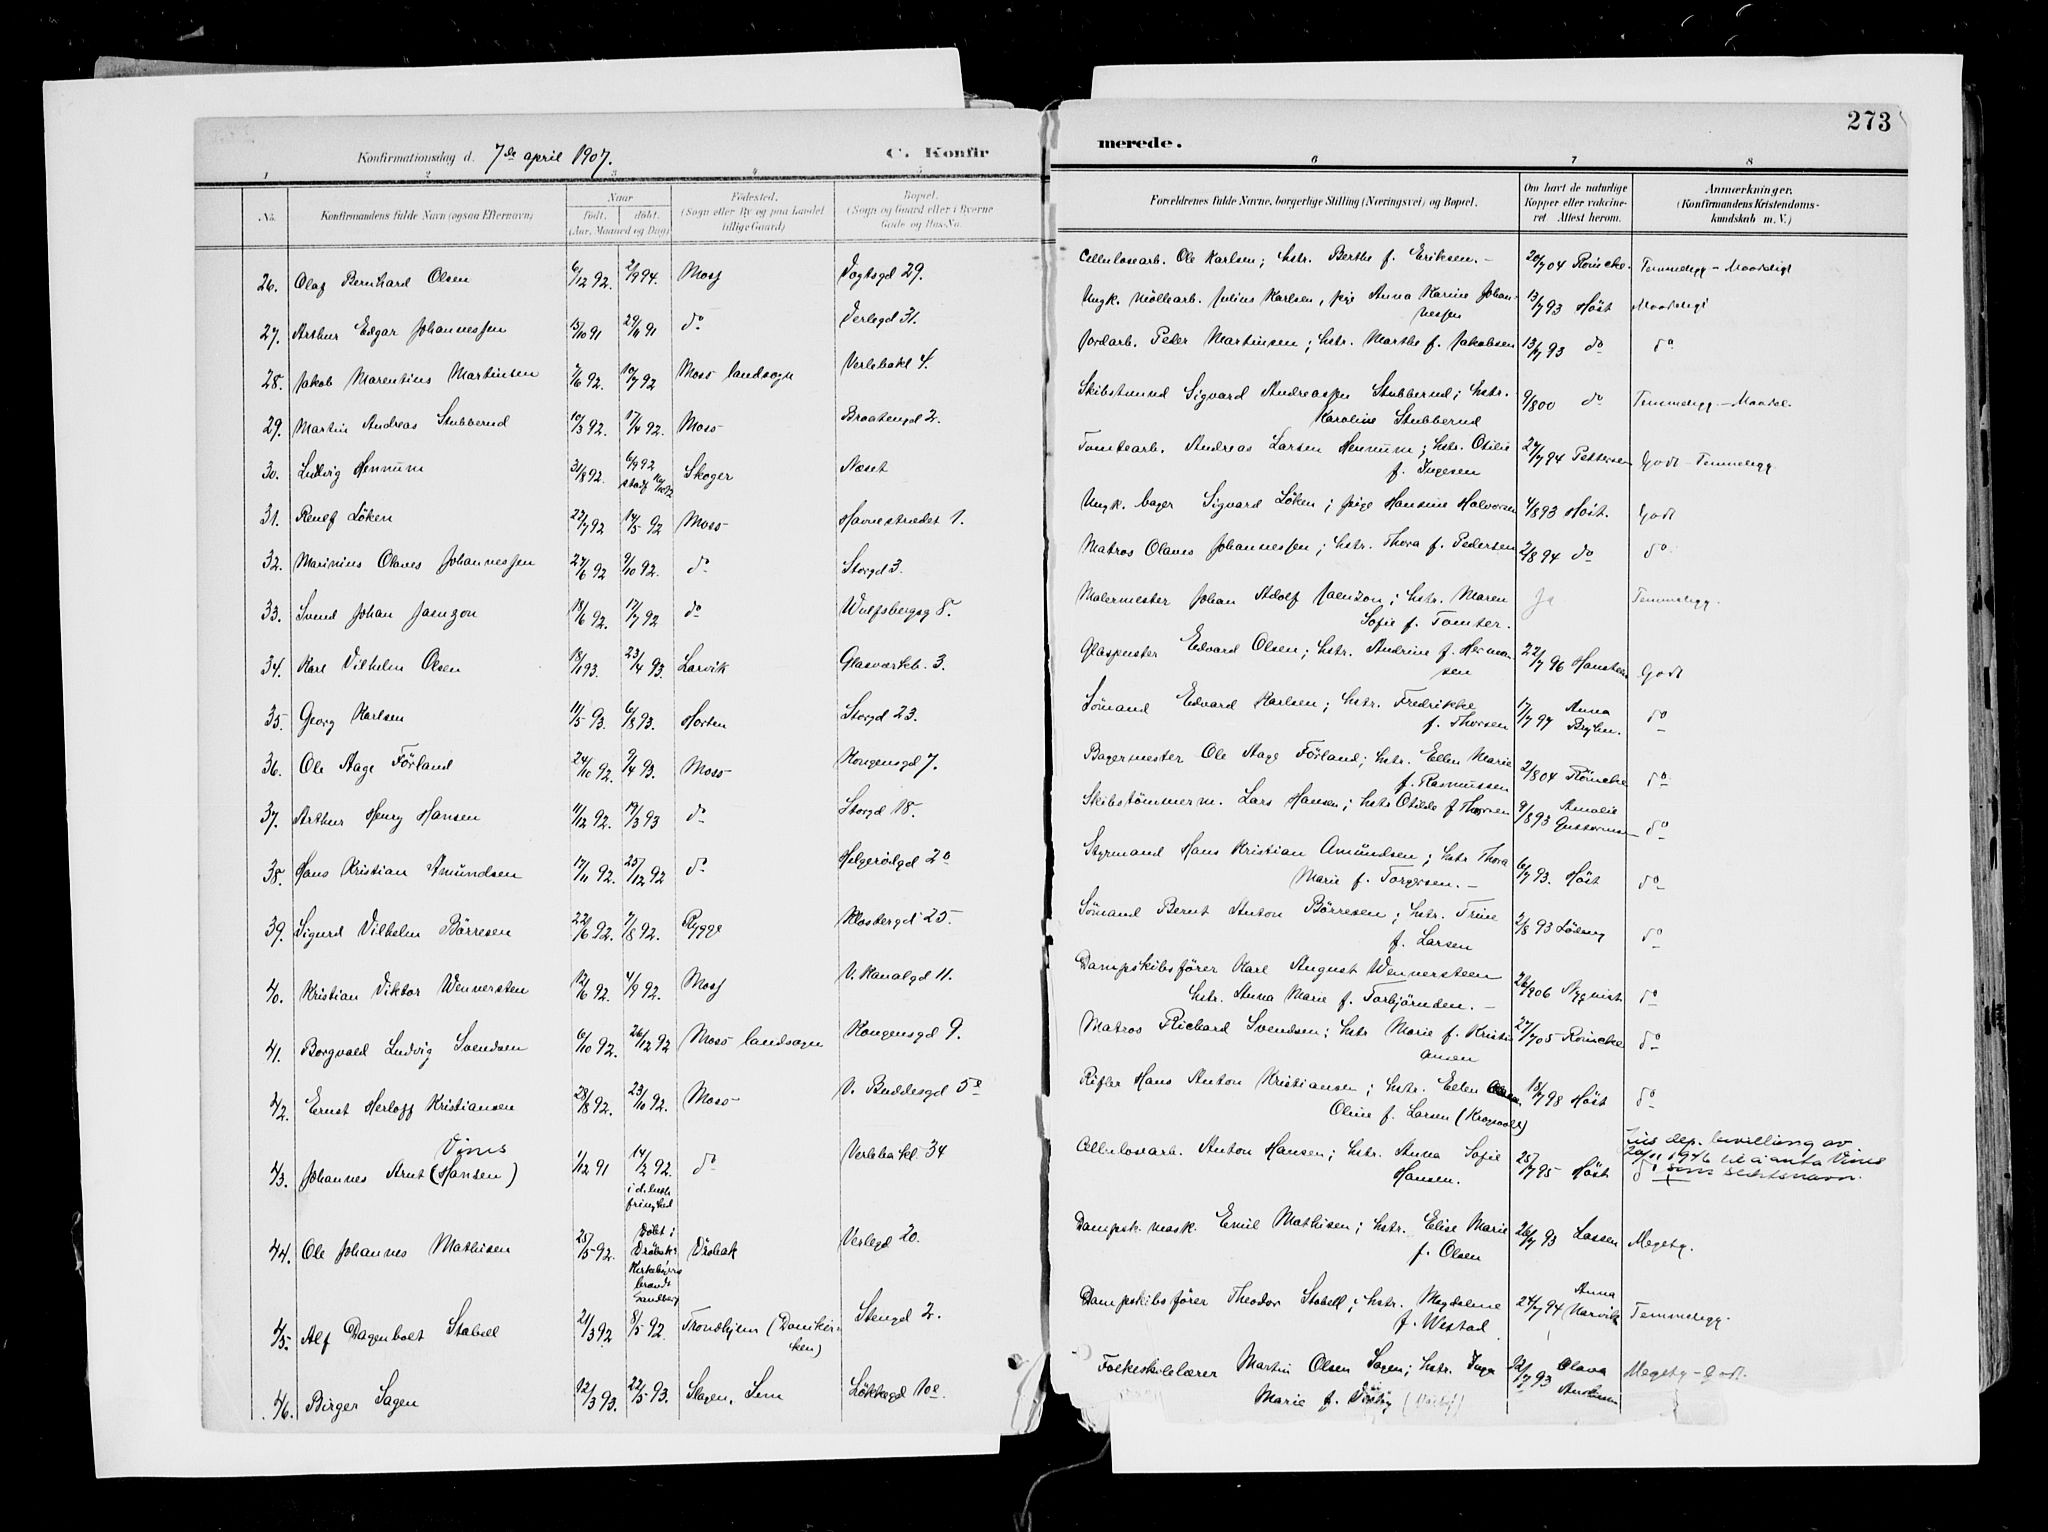 273
Konfirmationsdag d. 7de april 1907. C. Konfir merede.
1 2 3 4 5 6 7 8
No. Konfirmandens fulde Navn (ogsaa Efternavn) Naar født. døbt. (Aar, Maaned og Dag) Fødested. (Sogn eller By og paa Landet tillige Gaard) Bopæl. (Sogn og Gaard eller i Byerne Gade og Hus-No. Forældrenes fulde Navne, borgerlige Stilling (Næringsvei) og Bopæl. Om havt de naturlige Kopper eller vakcineret Attest herom. Anmærkninger. (Konfirmandens Kristendomskundskab m. V.)
26. Olaf Bernhard Olsen 6/12 92. 2/9 94. Moss Vogtsgd 29. Cellulosearb. Ole Karlsen; hstr. Berthe f. Eriksen. - 20/7 04 Roincke. Temmelegg - Maadeligt
27. Arthur Edgar Johannessen 13/10 91 29/11 91 do Verlegd 31. Ungk. möllearb. Julius Karlsen, pige Anna Karine Johannessen 13/7 93 Höst Maadeligt
28. Jakob Marentius Martinsen 7/6 92. 10/7 92 Moss landsogn Verlebakl 4. Jordarb. Peder Martinsen; hstr. Marthe f. Jakobsen 13/7 93 do do
29. Martin Andreas Stubberud 10/3 92. 17/4 92. Moss Braatengd 2. Skibstmnd Sigvard Andreassen Stubberud; hstr. Karoline Stubberud 9/8 00 do Temmelegg - Maadel.
30. Ludvig Hennum 31/8 92. 6/9 92 Skoger Næset Tomtearb. Andreas Larsen Hennum; hstr. Otilie f. Ingesen 27/7 94 Pettersen Godt - Temmelegg
31. Reulf Löken 22/7 92 14/5 92 Moss Havnestrædet 1. Ungk. bager Sigvard Löken; pige Hansine Halvorsen 4/8 93 Höst. Godt
32. Marinius Olaves Johannessen 27/6 92 9/10 92. do Storgd 3. Matros Olaves Johannessen; hstr. Thora f. Pedersen 2/8 94 do do
33. Svend Johan Jaenzon 18/6 92. 17/7 92 do Wulfsbergsg 8. Malermester Johan Adolf Jaenzon; hstr. Maren Sofie f. Tomter. Ja Temmelegg.
34. Karl Vilhelm Olsen 18/1 93. 23/4 93. Larvik Glasværkb. 3. Glaspuster Edvard Olsen; hstr. Andrine f. Hermansen 22/7 96 Hansteen Godt
35. Georg Karlsen 11/5 93. 6/8 93. Horten Storgd 23. Sömand Edvard Karlsen; hstr. Fredrikke f. Thorsen 17/7 97 Anna do
36. Ole Aage Förland 24/10 92. 9/4 93. Moss Kongensgd 7. Bagermester Ole Aage Förland; hstr. Ellen Marie f. Rasmussen 2/8 04 Röincke do
37. Arthur Henry Hansen 11/12 92. 19/3 93 do Storgd 18. Skibstömmerm. Lars Hansen; hstr Otilde f Thorsen 9/8 93 Amalie do
38. Hans Kristian Amundsen 17/11 92. 25/12 92 do Helgerödgd 2a Styrmand Hans Kristian Amundsen; hstr Thora Marie f. Torgersen. - 6/7 93. Höst do
39. Sigurd Vilhelm Börresen 22/6 92. 7/8 92. Rygge Klostergd 25. Sömand Bernt Anton Börresen; hstr. Trine f. Larsen 2/8 93 do
40. Kristian Viktor Wennersten 12/6 92. 4/9 92. Moss V. Kanalgd 11. Dampskibsförer Karl August Wennersteen hstr. Anna Marie f. Torbjörnsen. - 26/9 06 Nyquist do
41. Borgvald Ludvig Svendsen 6/10 92. 26/12 92 Moss landsogn Kongensgd 9. Matros Richard Svendsen; hstr Marie f. Kristiansen 27/7 05 Roincke do
42. Ernst Herloff Kristiansen 28/8 92. 23/10 92. Moss V. Buddesgd 5e Rifler Hans Anton Kristiansen; hstr. Ellen Oline f. Larsen 18/7 98 Höst do
43. Johannes Arnt (Hansen) Vines 1/12 91 14/2 92. do Verlebakl 34 Cellulosearb. Anton Hansen; hstr. Anna Sofie Hansen. 25/7 95 Höst do Jus. dep. bevilling av 20/11 1946 til å anta Vines som slektsnavn.
44. Ole Johannes Mathisen 25/5 92. Döbt i Dröbak Dröbak Verlegd 20. Dampsk. mask. Emil Mathisen; hstr. Elise Marie f. Olsen 26/7 93 Lassen Megetg.
45. Alf Dagenbolt Stabell 21/3 92 8/5 92. Trondhjem (Domkirken) Stengd 2. Dampskibsförer Theodor Stabell; hstr. Magdalene f. Westad 24/7 94 Anna Narvik Temmelegg.
46. Birger Sagen 12/3 93. 22/5 93. Slagen, Sem Lökkegd 10e Folkeskolelærer Martin Olsen Sagen; hstr. Inga Marie f. 12/7 93 Olava Megetg - Godt.